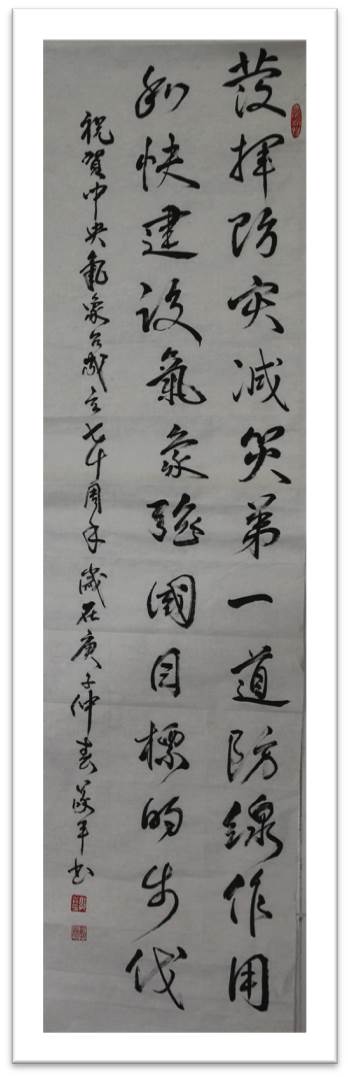 發揮防灾減災第一道防線作用
加快建設氣象強國目標的步伐
祝賀中央氣象台成立七十周年 歲在庚子仲春 平書